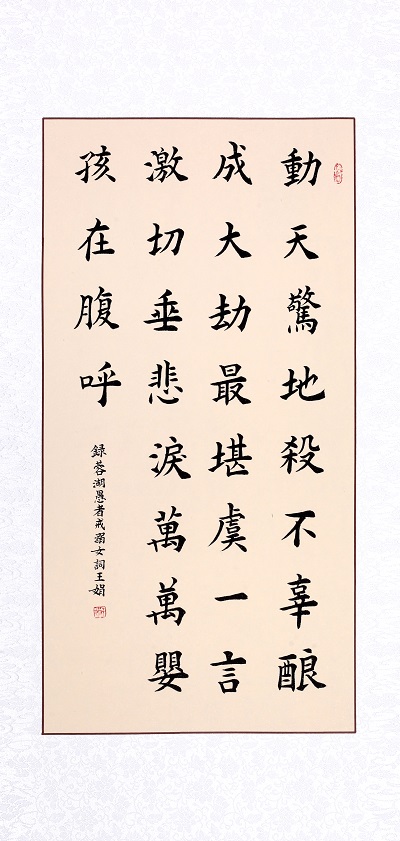 動天驚地殺不辜酿
成大劫最堪虞一言
激切垂悲淚萬萬嬰
孩在腹呼
録蓉湖愚者戒溺女詞王娟